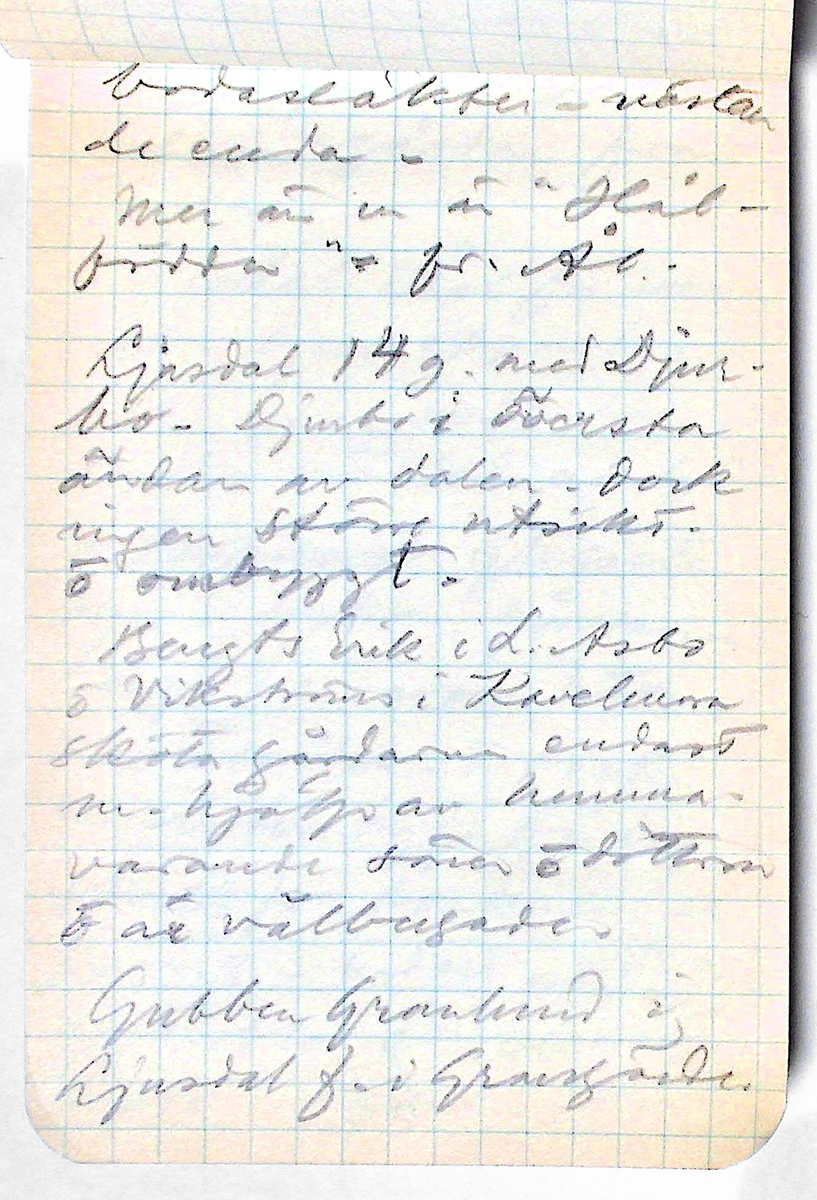 bodasläkter - nästan
de enda -
Mer än en är "
födda" - fr. Ål.
Ljusdal 14 g. med Djur-
bo. Djurbo i översta
ändan av dalen. Dock
ingen större utsikt.
o ombyggt.
Bengts Erik i L. Åsbo
o Vikströms i Kavelmora
sköta gårdarna endast
m. hjälp av hemma-
varande söner o döttrar
o är välbergade.
Gubben Granlund i
Ljusdal f. i